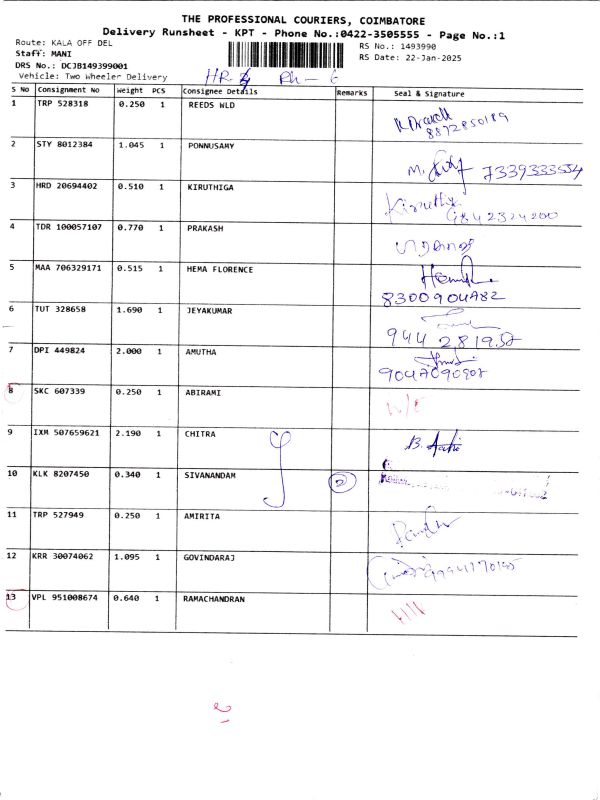 THE PROFESSIONAL COURIERS, COIMBATORE
Delivery Runsheet - KPT - Phone No.:0422-3505555 - Page No.:1
Route: KALA OFF DEL
RS No.: 1493990
Staff: MANI
RS Date: 22-Jan-2025
DRS No.: DCJB149399001
Vehicle: Two Wheeler Delivery
S No Consignment No Weight PCS Consignee Details Remarks Seal & Signature
1 TRP 528318 0.250 1 REEDS WLD
8872850189
2 STY 8012384 1.045 1 PONNUSAMY
7339333554
3 HRD 20694402 0.510 1 KIRUTHIGA
Kiruthiga
9842324200
4 TDR 100057107 0.770 1 PRAKASH
5 MAA 706329171 0.515 1 HEMA FLORENCE
8300904A82
6 TUT 328658 1.690 1 JEYAKUMAR
944 2819.52
7 DPI 449824 2.000 1 AMUTHA
8 SKC 607339 0.250 1 ABIRAMI
9 IXM 507659621 2.190 1 CHITRA
10 KLK 8207450 0.340 1 SIVANANDAM 2
11 TRP 527949 0.250 1 AMIRITA
12 KRR 30074062 1.095 1 GOVINDARAJ
13 VPL 951008674 0.640 1 RAMACHANDRAN